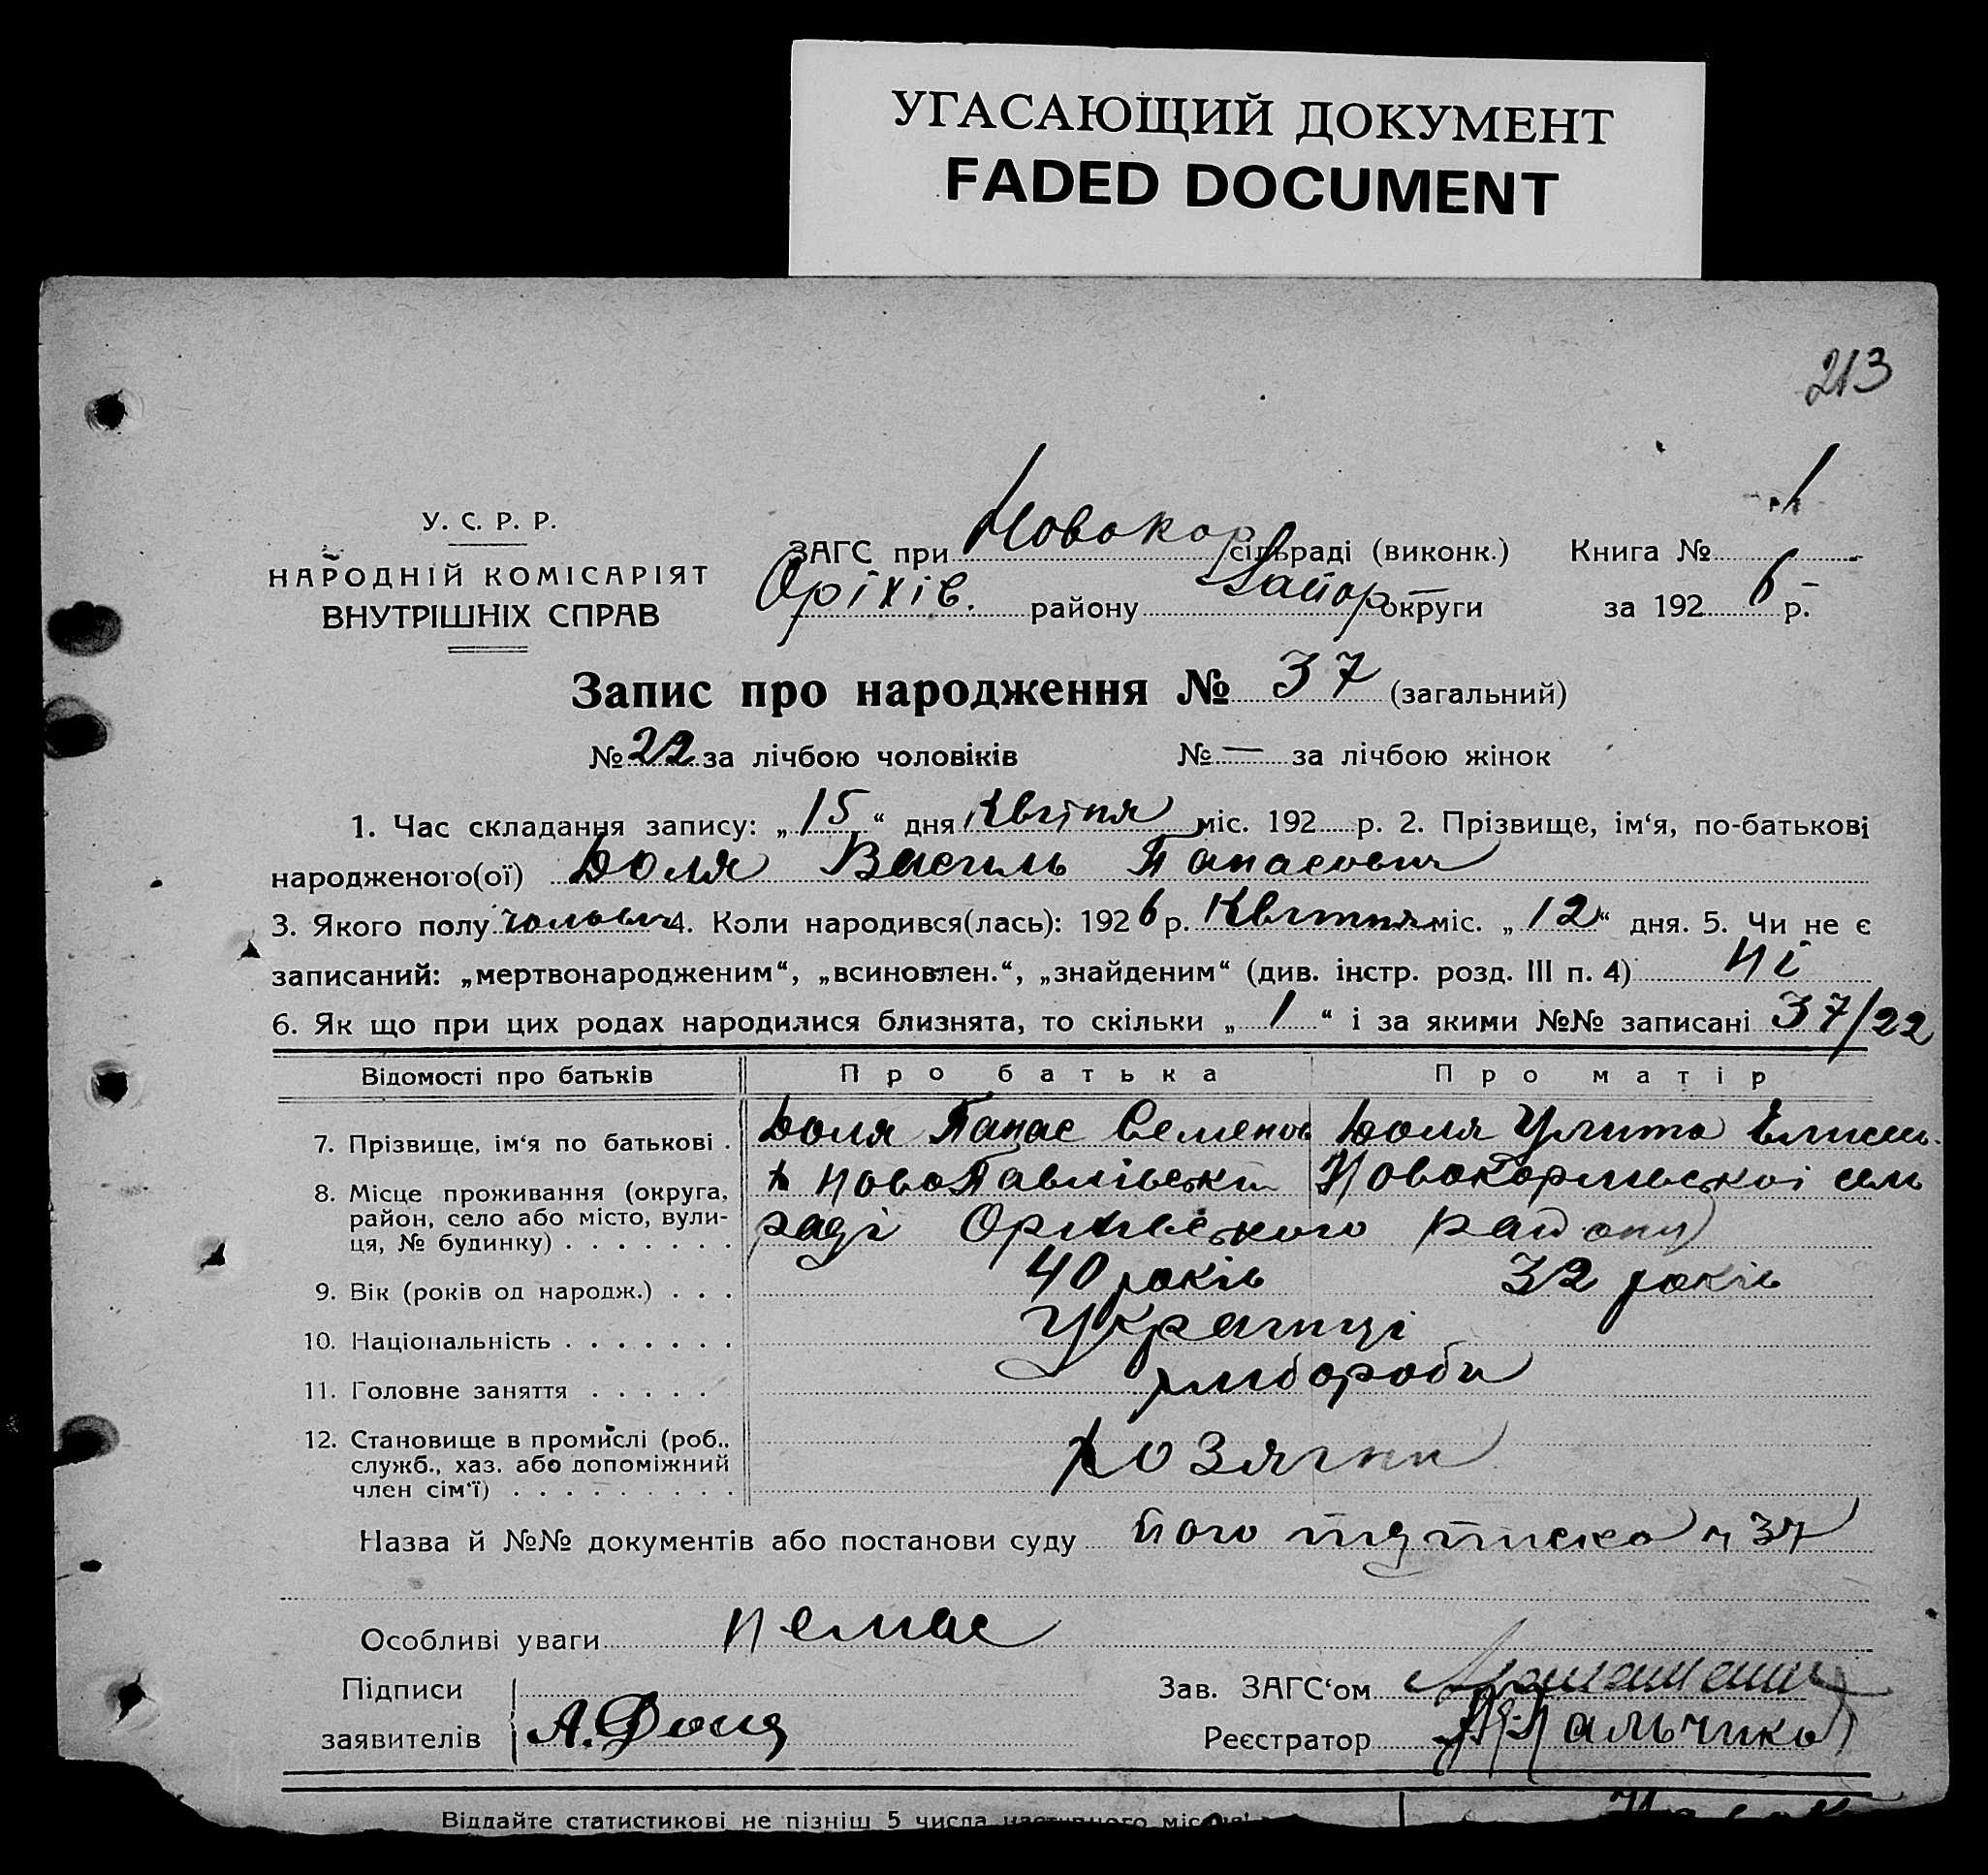 УГАСАЮЩИЙ ДОКУМЕНТ
FADED DOCUMENT
213
У. С. Р. Р.
НАРОДНІЙ КОМІСАРІЯТ
ВНУТРІШНІХ СПРАВ
ЗАГС при Новокар сільраді (виконк.) Книга № 1
Оріхів. району Запор округи за 192 6 р.
Запис про народження № 37 (загальний)
№ 22 за лічбою чоловіків № — за лічбою жінок
1. Час складання запису: „ 15 “ дня Квітня міс. 192 р. 2. Прізвище, ім‘я, по-батькові
народженого(ої) Доля Василь Панасович
3. Якого полу чоловіч 4. Коли народився(лась): 192 6 р. Квітня міс. „ 12 “ дня. 5. Чи не є
записаний: „мертвонародженим“, „всиновлен.“, „знайденим“ (див. інстр. розд. III п. 4) ні
6. Як що при цих родах народилися близнята, то скільки „ 1 “ і за якими №№ записані 37/22
Відомості про батьків Про батька Про матір
7. Прізвище, ім‘я по батькові . Доля Панас Семенов Доля Улита
8. Місце проживання (округа,
район, село або місто, вули-
ця, № будинку) . . . . . . . раді Оріхівського району
9. Вік (років од народж.) . . . 40 років 32 років
10. Національність . . . . . . . Українці
11. Головне заняття . . . . . хлібороби
12. Становище в промислі (роб.,
служб., хаз. або допоміжний
член сім‘ї) . . . . . . . . .
Назва й №№ документів або постанови суду його підписка ч 37
Особливі уваги немає
Підписи
заявителів А. Доля
Зав. ЗАГС‘ом
Реєстратор
Віддайте статистикові не пізніш 5 числа наступного